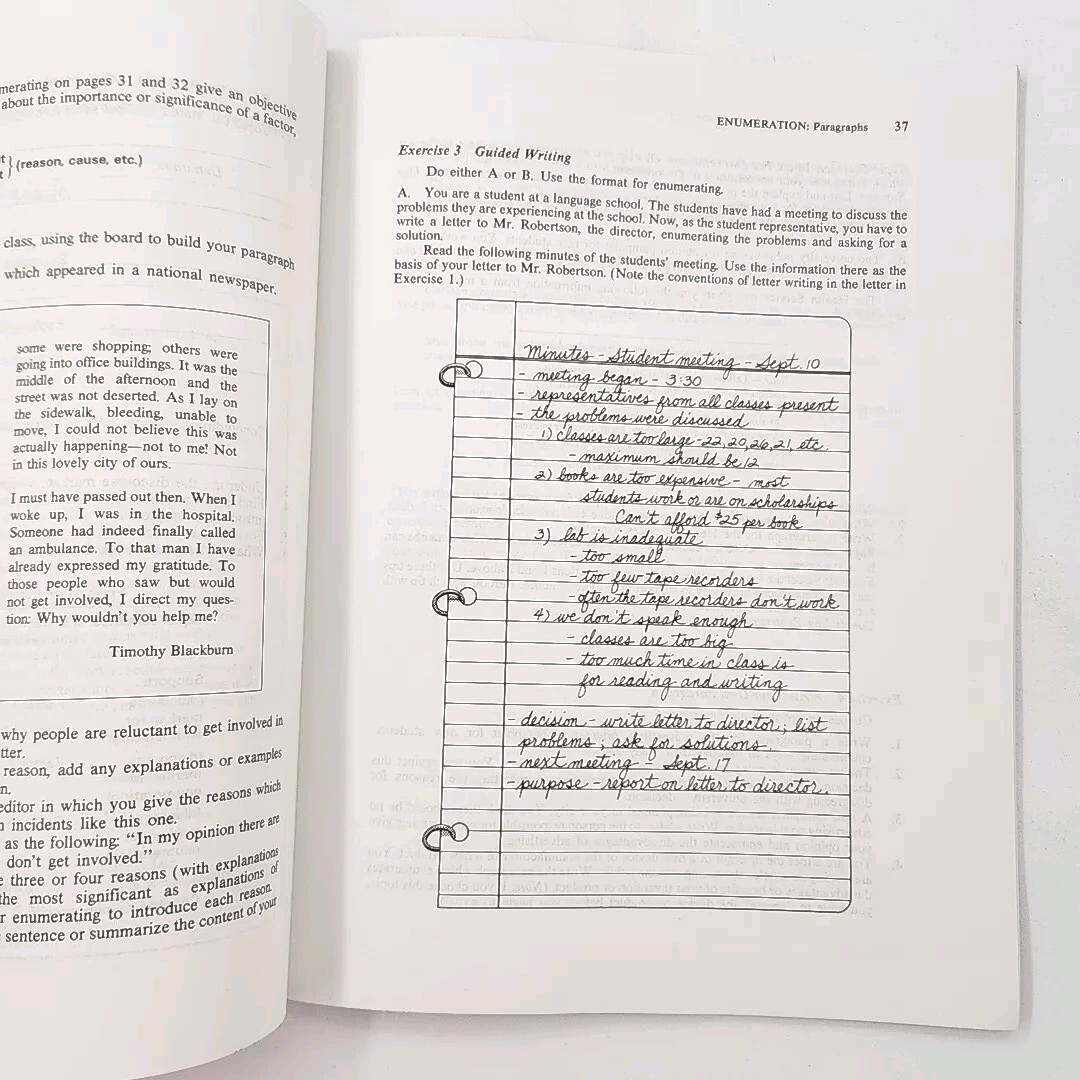 merating on pages 31 and 32 give an objective
about the importance or significance of a factor,
(reason, cause, etc.)
class, using the board to build your paragraph
which appeared in a national newspaper.
some were shopping; others were
going into office buildings. It was the
middle of the afternoon and the
street was not deserted. As I lay on
the sidewalk, bleeding, unable to
move, I could not believe this was
actually happening—not to me! Not
in this lovely city of ours.
I must have passed out then. When I
woke up, I was in the hospital.
Someone had indeed finally called
an ambulance. To that man I have
already expressed my gratitude. To
those people who saw but would
not get involved, I direct my ques-
tion: Why wouldn't you help me?
Timothy Blackburn
why people are reluctant to get involved in
tter.
reason, add any explanations or examples
n.
editor in which you give the reasons which
incidents like this one.
as the following: "In my opinion there are
don't get involved."
three or four reasons (with explanations
the most significant as explanations of
r enumerating to introduce each reason.
sentence or summarize the content of your
ENUMERATION: Paragraphs 37
Exercise 3 Guided Writing
Do either A or B. Use the format for enumerating.
A. You are a student at a language school. The students have had a meeting to discuss the
problems they are experiencing at the school. Now, as the student representative, you have to
write a letter to Mr. Robertson, the director, enumerating the problems and asking for a
solution.
Read the following minutes of the students' meeting. Use the information there as the
basis of your letter to Mr. Robertson. (Note the conventions of letter writing in the letter in
Exercise 1.)
Minutes - Student meeting - Sept. 10
- meeting began - 3:30
- representatives from all classes present
- the problems were discussed
1) classes are too large - 22, 20, 26, 21, etc.
- maximum should be 12
2) books are too expensive - most
students work or are on scholarships
Can't afford $25 per book
3) lab is inadequate
- too small
- too few tape recorders
- often the tape recorders don't work
4) we don't speak enough
- classes are too big
- too much time in class is
for reading and writing
- decision - write letter to director; list
problems; ask for solutions.
- next meeting - Sept. 17
- purpose - report on letter to director.